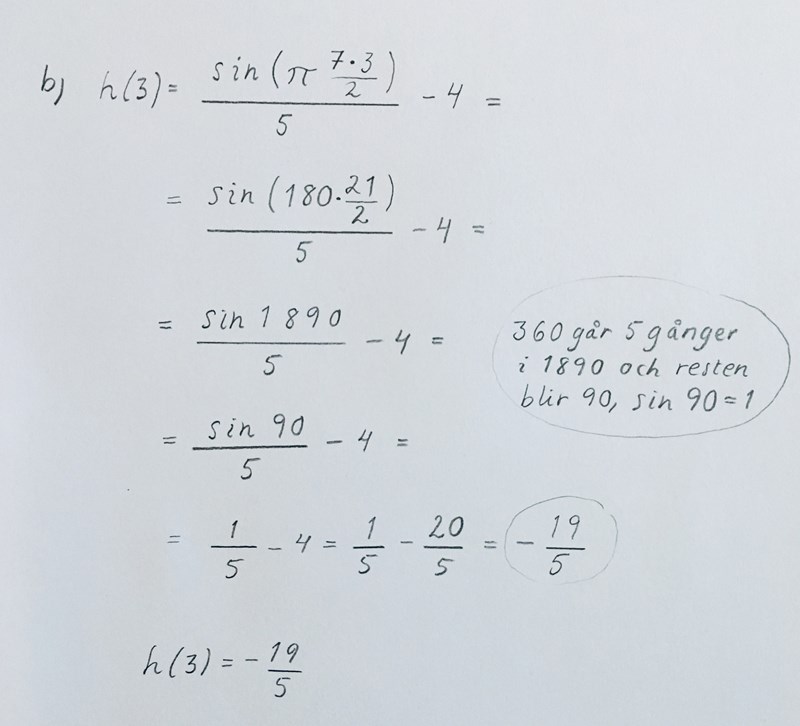 b) h(3) = sin(π 7·3/2)/5 - 4 =
= sin(180·21/2)/5 - 4 =
= sin 1 890/5 - 4 =
360 går 5 gånger
i 1890 och resten
blir 90, sin 90 = 1
= sin 90/5 - 4 =
= 1/5 - 4 = 1/5 - 20/5 = - 19/5
h(3) = - 19/5